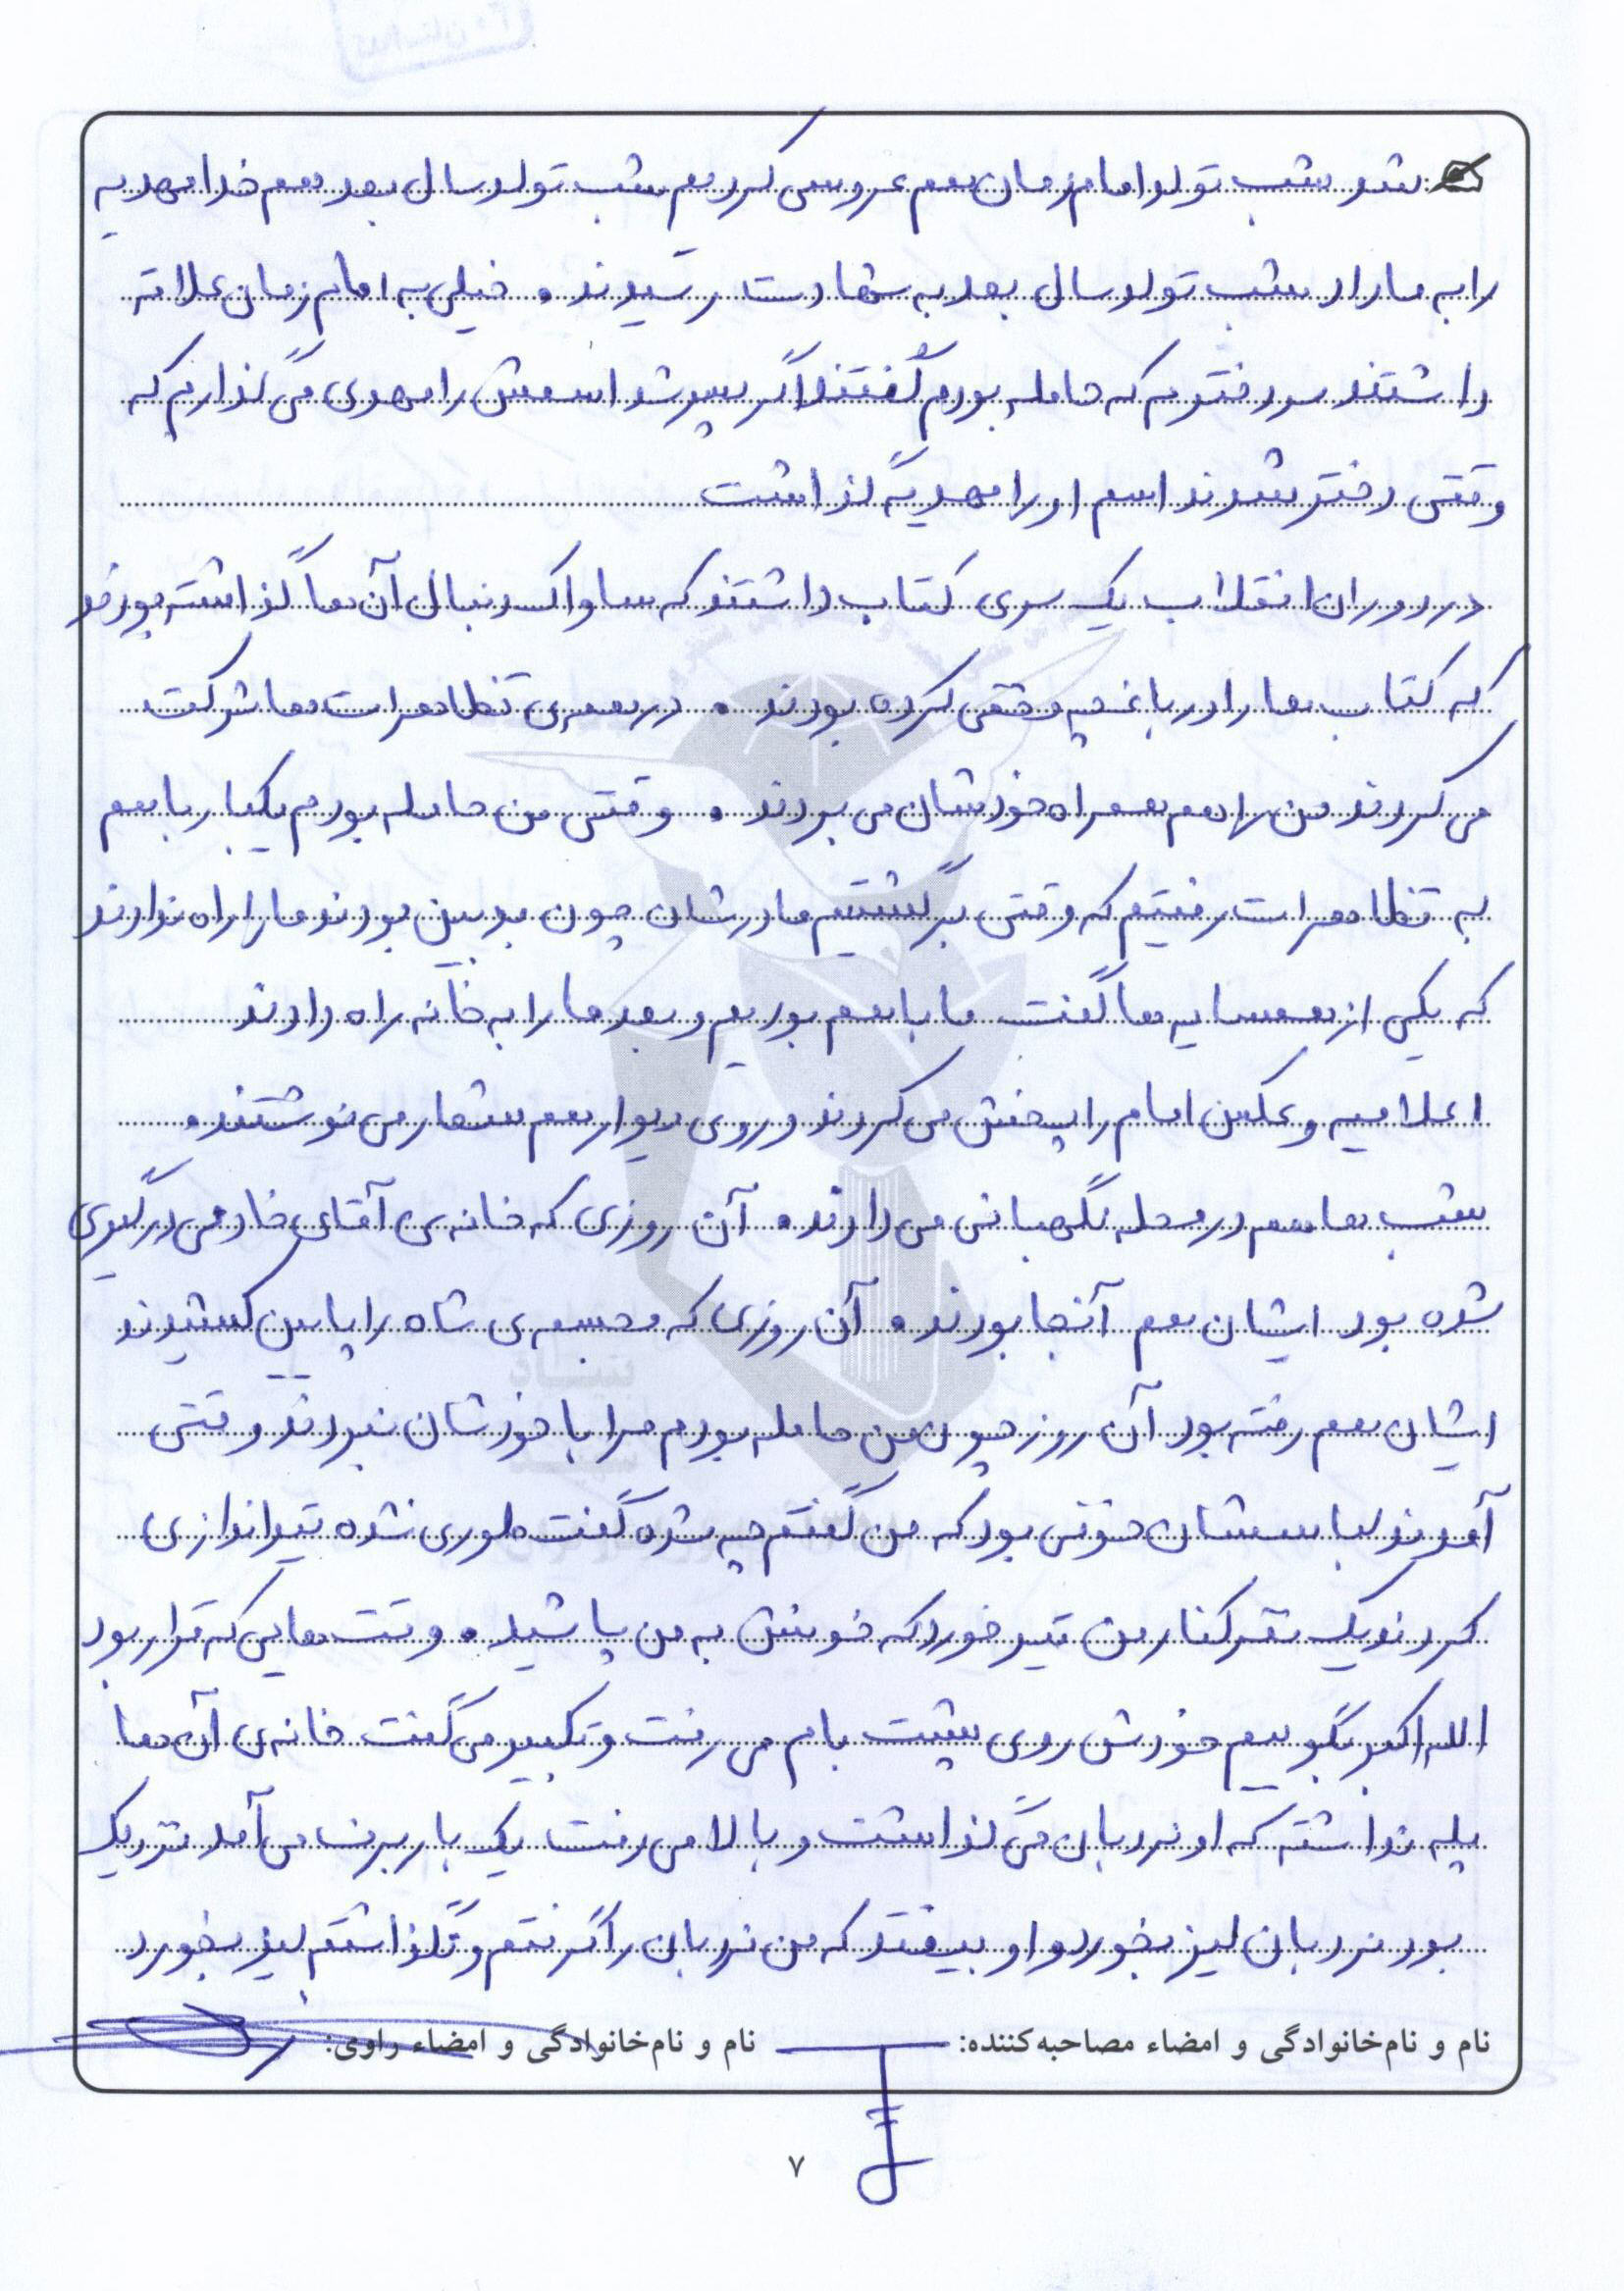 شد. شب تولد امام زمان هم عروسی کردیم شب تولد سال بعد هم خدا مهدیه
را به ما داد شب تولد سال بعد به شهادت رسیدند. خیلی به امام زمان علاقه
داشتند سر دخترم که حامله بودم گفتند اگر پسر شد اسمش را مهدی می گذاریم که
وقتی دختر شدند اسم او را مهدیه گذاشت
در دوران انقلاب یک سری کتاب داشتند که ساواک دنبال آن ها گذاشته بودند
که کتاب ها را در باغچه مخفی کرده بودند. در همه ی تظاهرات ها شرکت
می کردند من را هم همراه خودشان می بردند. وقتی من حامله بودم یکبار با هم
به تظاهرات رفتیم که وقتی برگشتیم مادرشان چون بدبین بودند ما را راه ندادند
که یکی از همسایه ها گفت ما با هم بودیم و بعد ما را به خانه راه دادند
اعلامیه و عکس امام را پخش می کردند و روی دیوار هم شعار می نوشتند.
شب ها هم در محله نگهبانی می دادند. آن روزی که خانه ی آقای خادمی درگیری
شده بود ایشان هم آنجا بودند. آن روزی که مجسمه ی شاه را پایین کشیدند
ایشان هم رفته بود آن روز چون من حامله بودم مرا با خودشان نبردند وقتی
آمدند لباسشان خونی بود که من گفتم چه شده گفت طوری نشده تیراندازی
کردند یک نفر کنار من تیر خورد که خونش به من پاشید. وقت هایی که قرار بود
الله اکبر بگوییم خودش روی پشت بام می رفت و تکبیر می گفت خانه ی آن ها
پله نداشته که او نردبان می گذاشت و بالا می رفت یک بار برف می آمد نزدیک
بود نردبان لیز بخورد و او بیفتد که من نردبان را گرفتم و نگذاشتم لیز بخورد
نام و نام‌خانوادگی و امضاء مصاحبه‌کننده: نام و نام‌خانوادگی و امضاء راوی:
۷